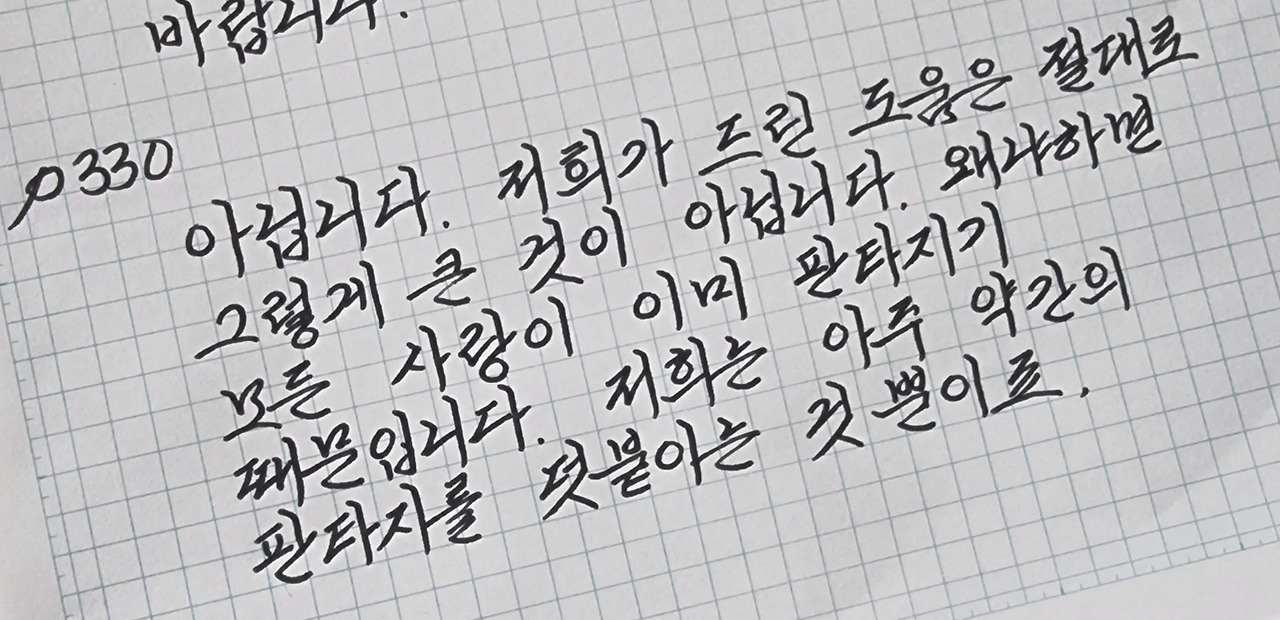 바랍니다.
p330
아닙니다. 저희가 드린 도움은 절대로
그렇게 큰 것이 아닙니다. 왜냐하면
모든 사람이 이미 판타지기
때문입니다. 저희는 아주 약간의
판타지를 덧붙이는 것 뿐이로,